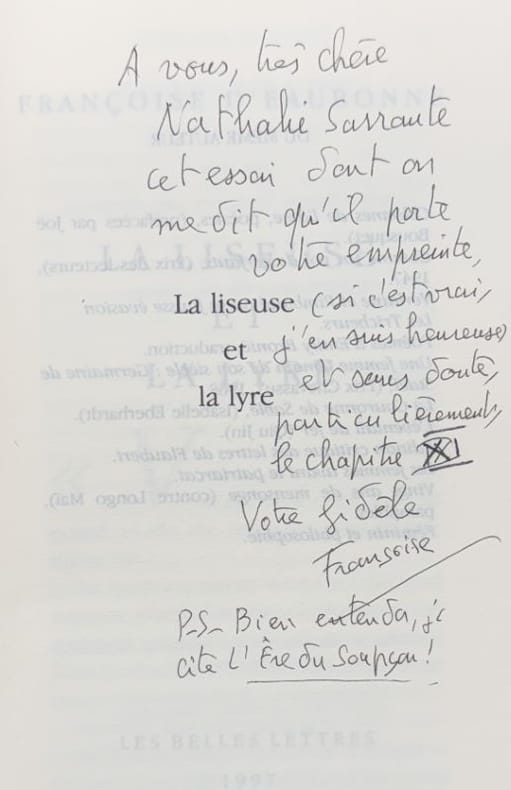 A vous, très chère
FRANÇOISE D'EAUBONNE
Nathalie Sarraute
cet essai dont on
me dit qu'il porte
votre empreinte,
La liseuse (si c'est vrai,
et j'en suis heureuse)
la lyre et sans doute,
particulièrement,
le chapitre
Votre fidèle
Françoise
P.S. Bien entendu, je
cite L'Ère du Soupçon!
LES BELLES LETTRES
1997